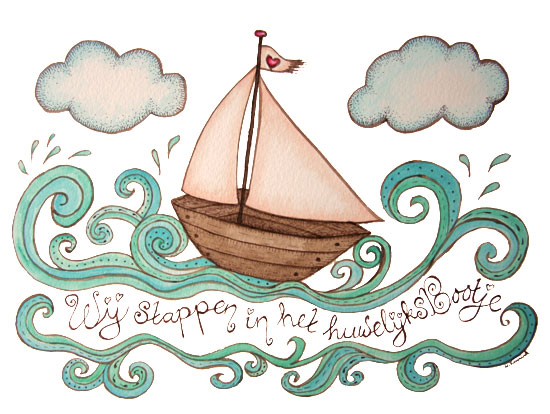 Wij stappen in het huwelijksBootje